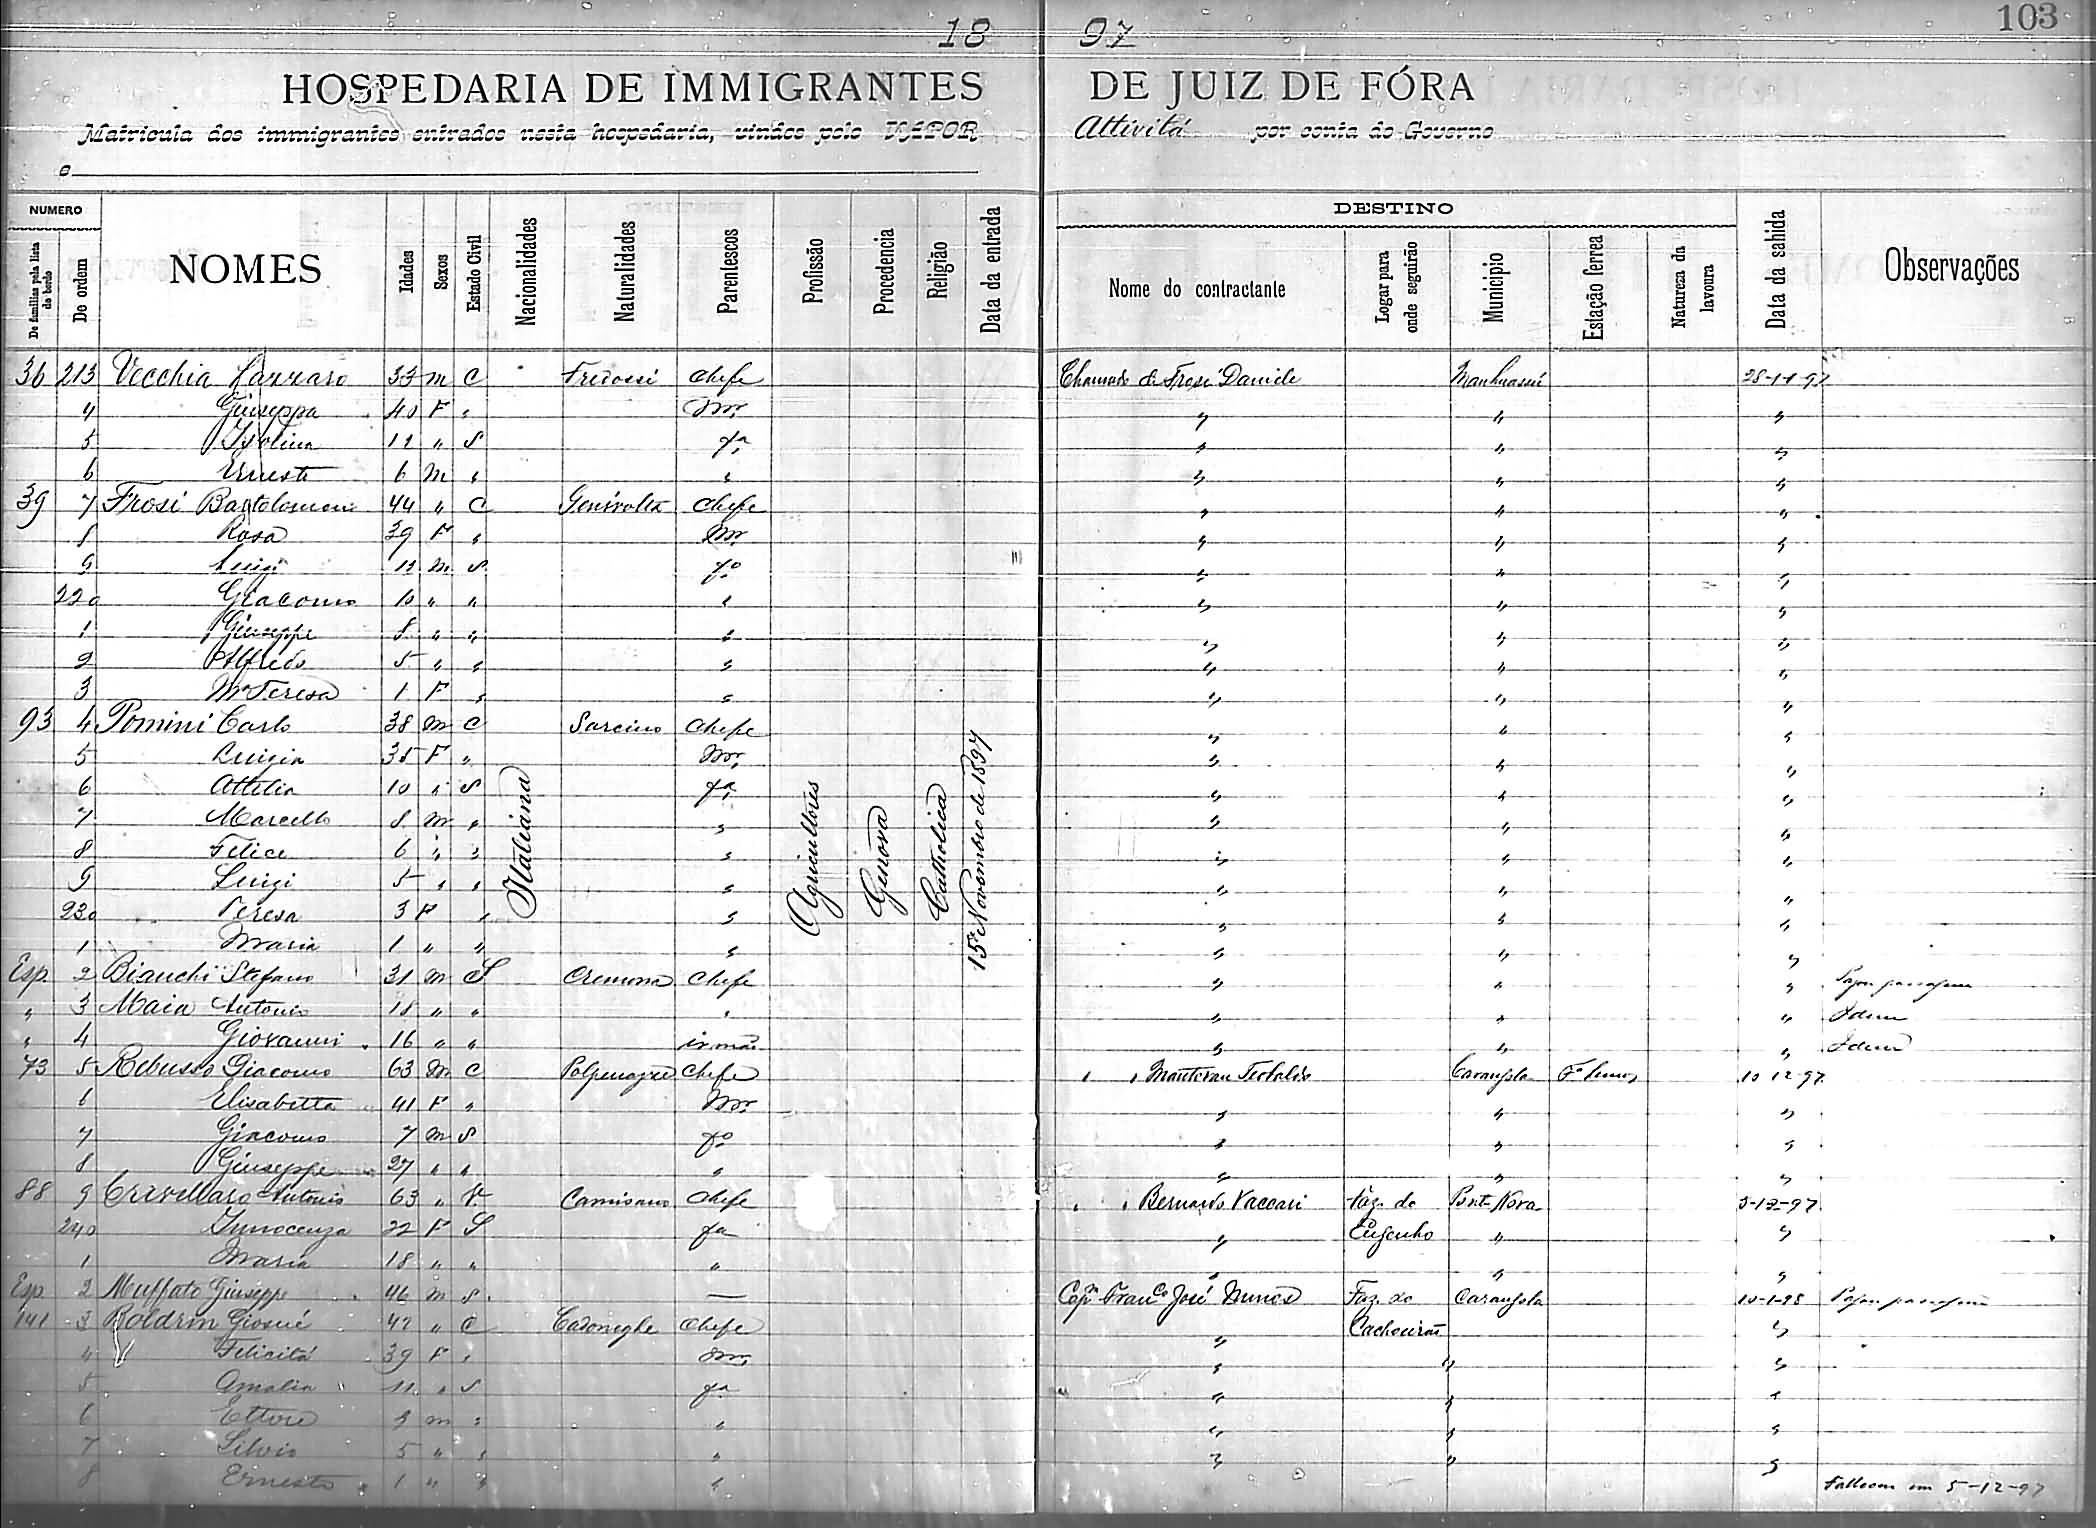 103
18 97
HOSPEDARIA DE IMMIGRANTES DE JUIZ DE FÓRA
Matricula dos immigrantes entrados nesta hospedaria, vindos pelo VAPOR Attivitá por conta do Governo
e
NUMERO DESTINO
De familias pela lista de bordo De ordem NOMES Idades Sexos Estado Civil Nacionalidades Naturalidades Parentescos Profissão Procedencia Religião Data da entrada Nome do contractante Logar para onde seguirão Municipio Estação ferrea Natureza da lavoura Data da sahida Observações
36 213 Vecchia 33 M C Chefe Chamado de Frosi Daniele Manhuassú 28-11-97
4 Giuseppa 40 F " Mer " " "
5 Isolina 12 " S fa " " "
6 Ernesto 6 M " " " " "
39 7 Frosi Bartolomeu 44 " C Genivolta Chefe " " "
8 Rosa 39 F " Mer " " "
9 Luigi 12 M S fo " " "
220 Giacomo 10 " " " " " "
1 Giuseppe 8 " " " " " "
2 Alfredo 5 " " " " " "
3 Ma Teresa 1 F " " " " "
93 4 Pomini Carlo 38 M C Chefe " " "
5 Luigia 35 F " Mer " " "
6 Attilia 10 " S fa " " "
7 Marcello 8 M " " " " "
8 Felice 6 " " " " " "
9 Luigi 5 " " " " " "
230 Teresa 3 F " " " " "
1 Maria 1 " " " " " "
Italiana Agricultores Genova Catholica 15 Novembro de 1897
Esp. 2 Bianchi Stefano 31 M S Cremona Chefe " " " Pagou passagem
" 3 Maia Antonio 18 " " " " " " Idem
" 4 Giovanni 16 " " irmão " " " Idem
73 5 Rebusso Giacomo 63 M C Chefe " " Teobaldo Carangola 10 12-97
6 Elisabetta 41 F " Mer " " "
7 Giacomo 7 M S fo " " "
8 Giuseppe 27 " " " " " "
88 9 Crivellaro Antonio 63 " V. Camisano Chefe " " Bernardo Vaccari Faz. do Ponte Nova 3-12-97
240 Innocenza 22 F S fa " Engenho " "
1 Maria 18 " " " " " "
Esp 2 Muffato Giuseppe 46 M S. — Capm Franco José Nunes Faz. da Carangola 10-1-98 Pagou passagem
141 3 Boldrin Giosué 42 " C Cadoneghe Chefe " Cachoeira "
4 Felicitá 39 F " Mer " " "
5 Amalia 11 " S fa " " "
6 Ettore 9 M " " " " "
7 Silvio 5 " " " " " "
8 Ernesto 1 " " " Falleceu em 5-12-97